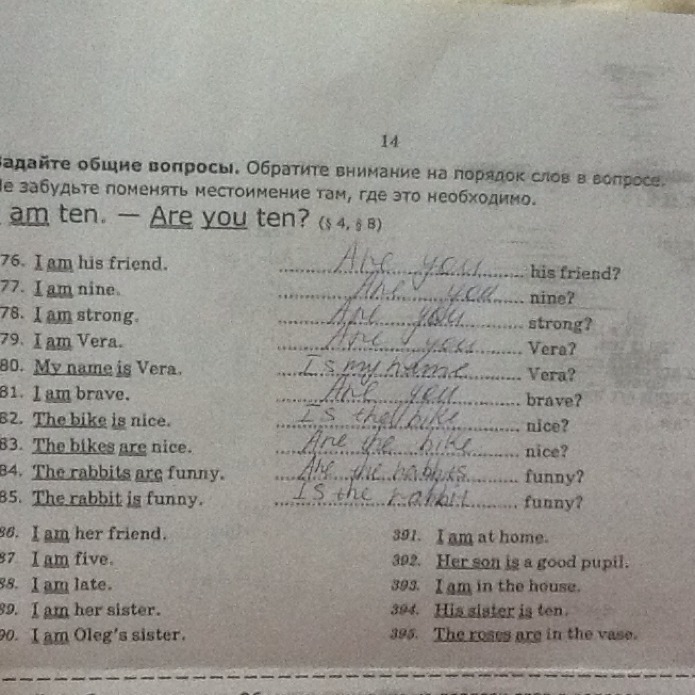 14
Задайте общие вопросы. Обратите внимание на порядок слов в вопросе.
Не забудьте поменять местоимение там, где это необходимо.
am ten. — Are you ten? (§ 4, § 8)
76. I am his friend. Are you his friend?
77. I am nine. Are you nine?
78. I am strong. Are you strong?
79. I am Vera. Are you Vera?
80. My name is Vera. Is my name Vera?
81. I am brave. Are you brave?
82. The bike is nice. Is the bike nice?
83. The bikes are nice. Are the bike nice?
84. The rabbits are funny. Are the rabbits funny?
85. The rabbit is funny. Is the rabbit funny?
86. I am her friend. 391. I am at home.
87. I am five. 392. Her son is a good pupil.
88. I am late. 393. I am in the house.
89. I am her sister. 394. His sister is ten.
90. I am Oleg's sister. 395. The roses are in the vase.